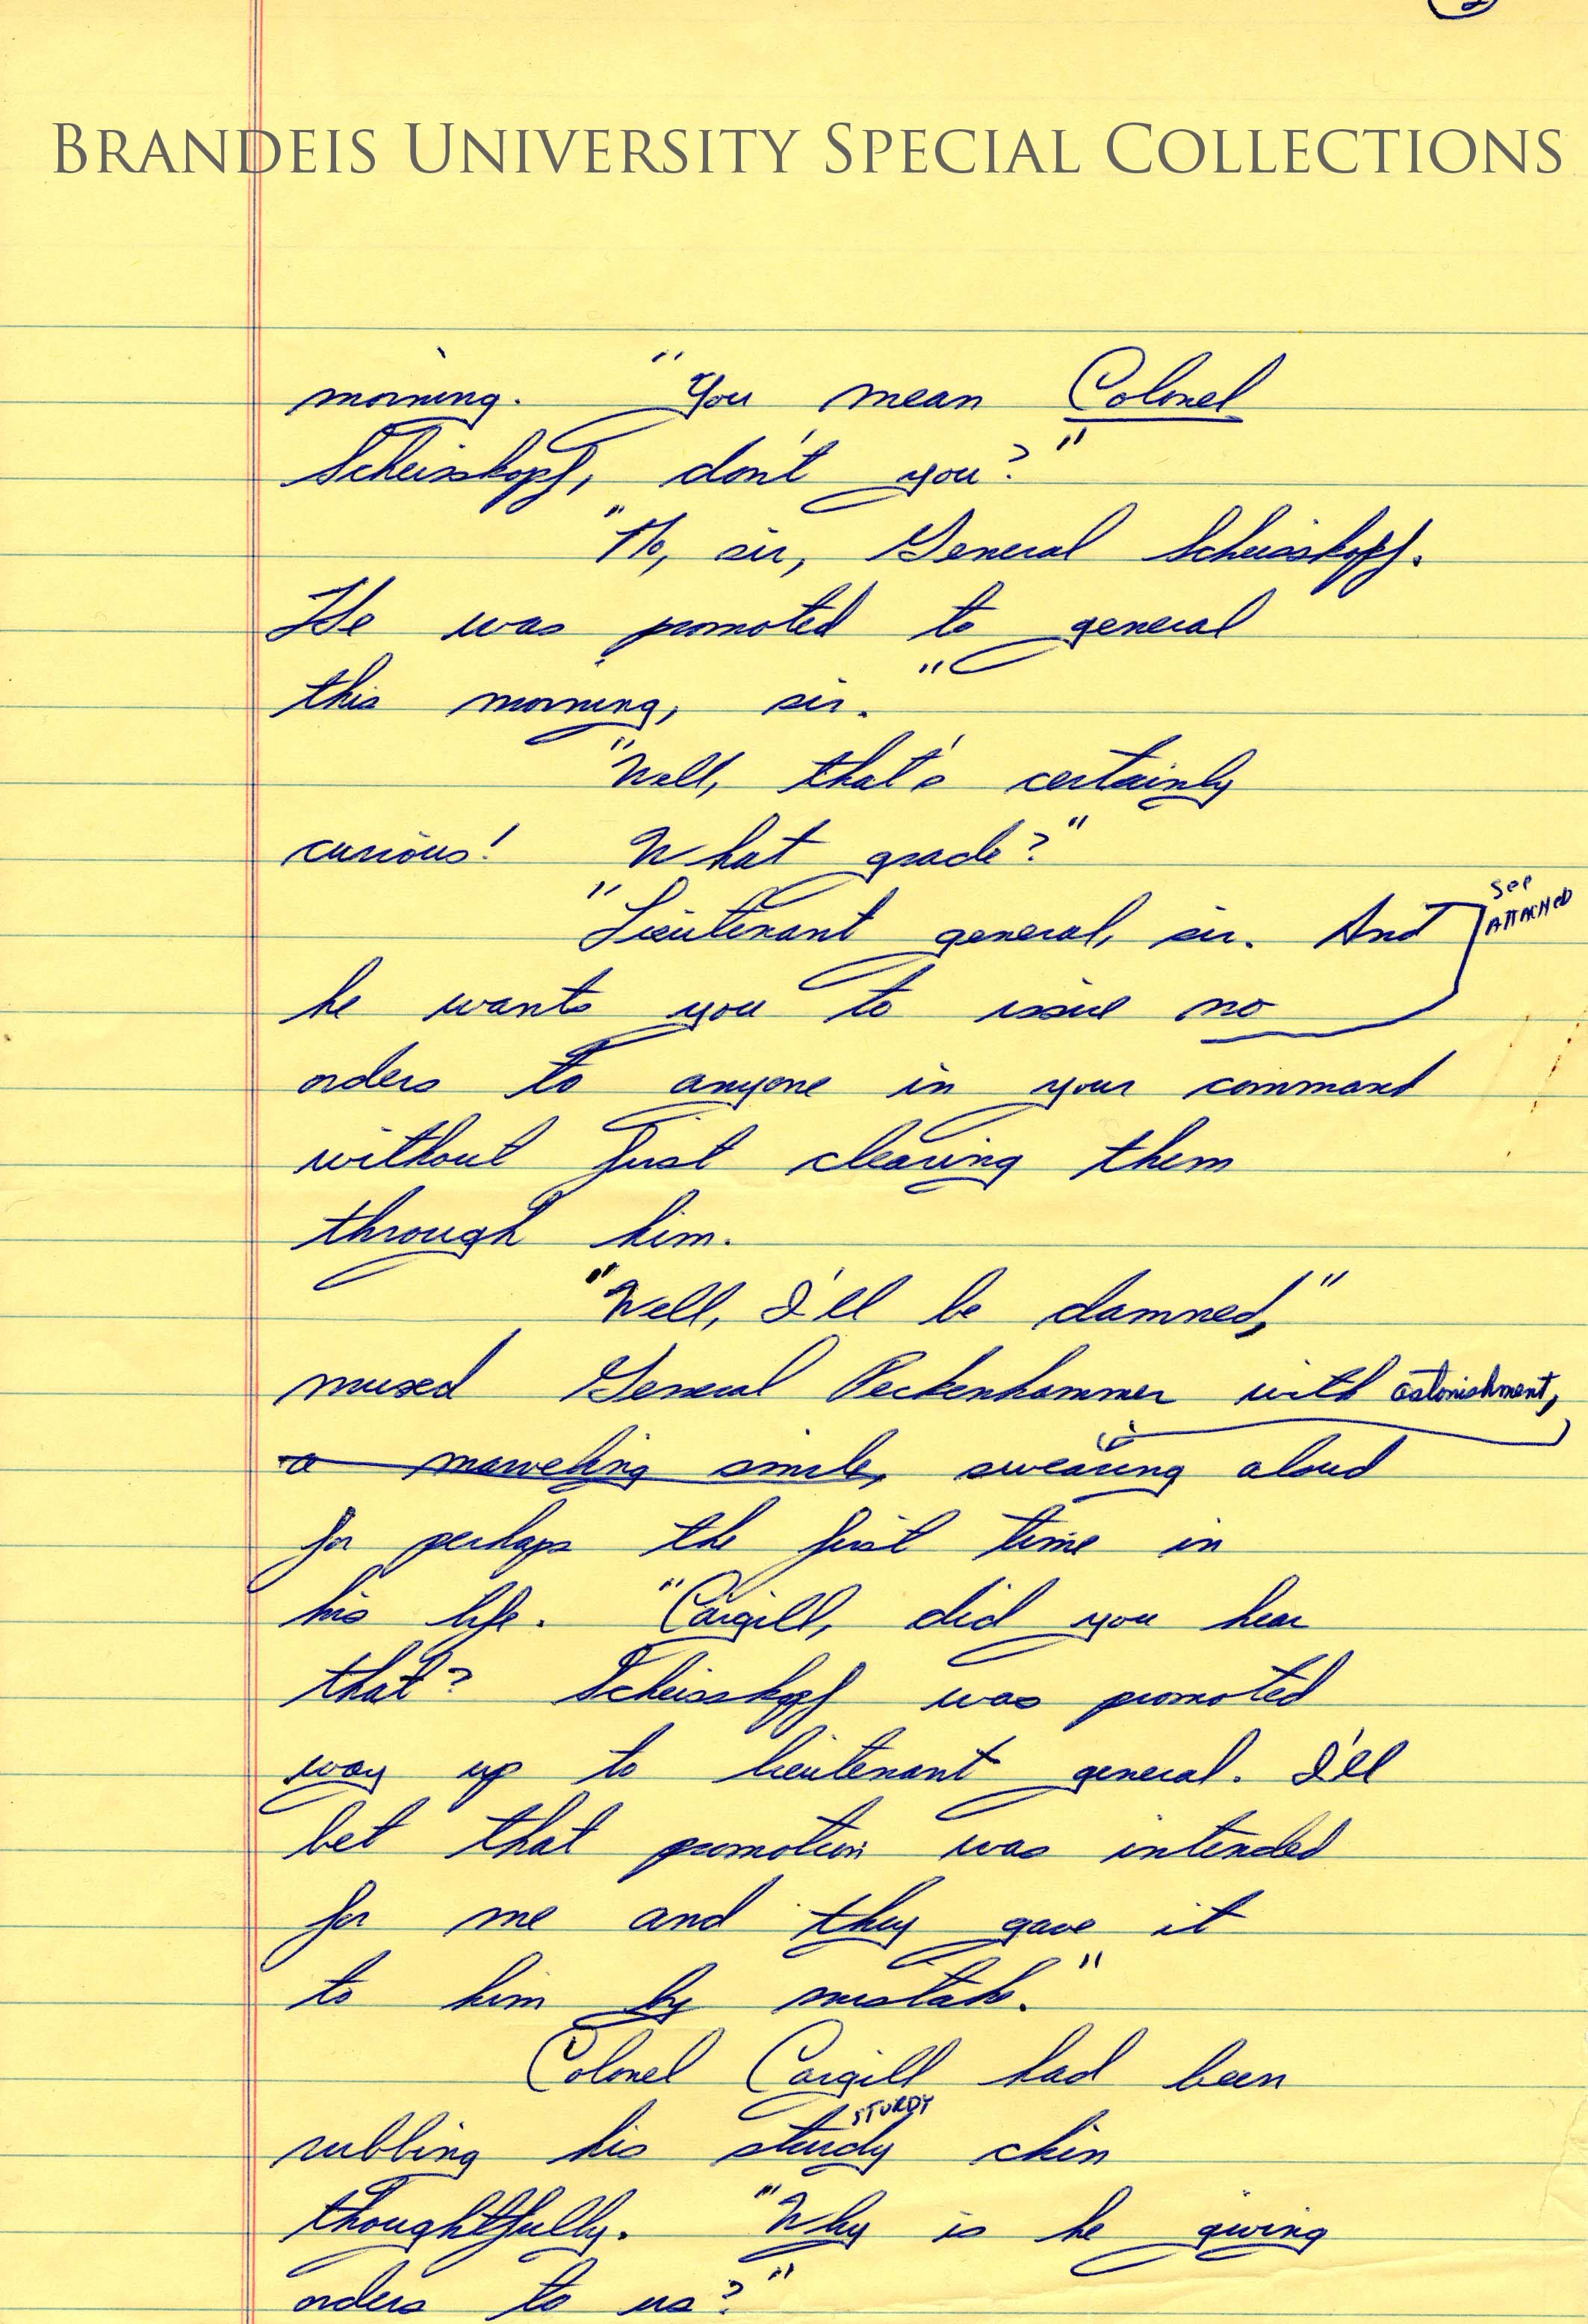 BRANDEIS UNIVERSITY SPECIAL COLLECTIONS
morning. "You mean Colonel
Scheisskopf, don't you?"
"No, sir, General Scheisskopf.
He was promoted to general
this morning, sir."
"Well, that's certainly
curious! What grade?"
"Lieutenant general, sir. And
see
ATTACHED
he wants you to issue no
orders to anyone in your command
without first clearing them
through him.
"Well, I'll be damned,"
mused General Peckenhammer with astonishment,
a marveling smile, swearing aloud
for perhaps the first time in
his life. "Cargill, did you hear
that? Scheisskopf was promoted
way up to lieutenant general. I'll
bet that promotion was intended
for me and they gave it
to him by mistake."
Colonel Cargill had been
STURDY
rubbing his sturdy chin
thoughtfully. "Why is he giving
orders to us?"